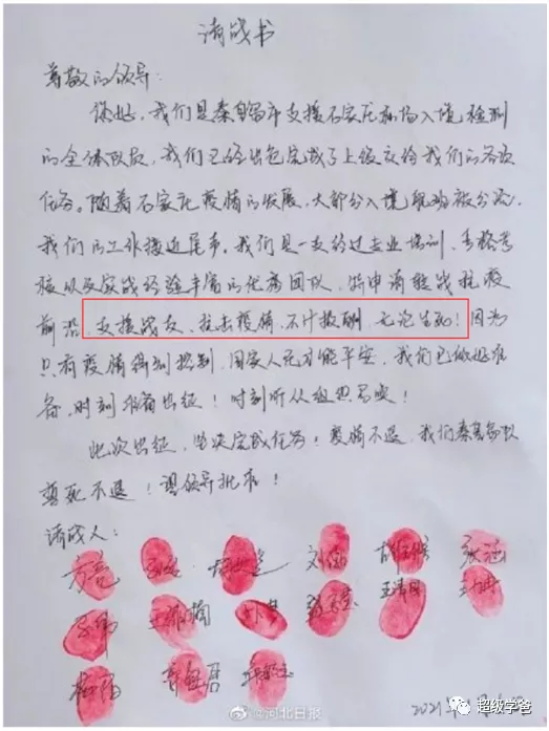 请战书
尊敬的领导:
你好,我们是秦皇岛市支援石家庄机场入境检测
的全体队员,我们已经出色完成了上级交给我们的各项
任务。随着石家庄疫情的发展,大部分入境航班被分流,
我们的工作接近尾声。我们是一支经过专业培训,严格考
核以及实战经验丰富的优秀团队,特申请转战抗疫
前沿,支援战友,抗击疫情,不计报酬,无论生死!因为
只有疫情得到控制,国家人民才能平安,我们已做好准
备,时刻准备出征!时刻听从组织召唤!
此次出征,坚决完成任务!疫情不退,我们秦皇岛队
誓死不退!望领导批准!
请战人:
方亮 刘 张
王
2021年1月
@河北日报
超级学爸